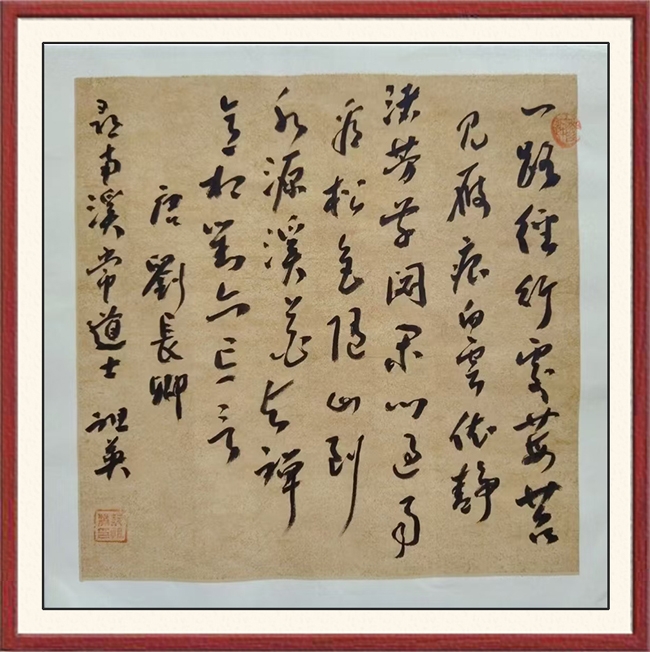 一路經行處莓苔
見履痕白雲依靜
渚芳草閉閑門過雨
看松色隨山到
水源溪花与禪
意相對亦忘言
唐劉長卿
尋南溪常道士 祖英